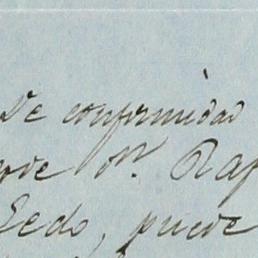 De conformidad
Dn. Raf
Ledo, puede